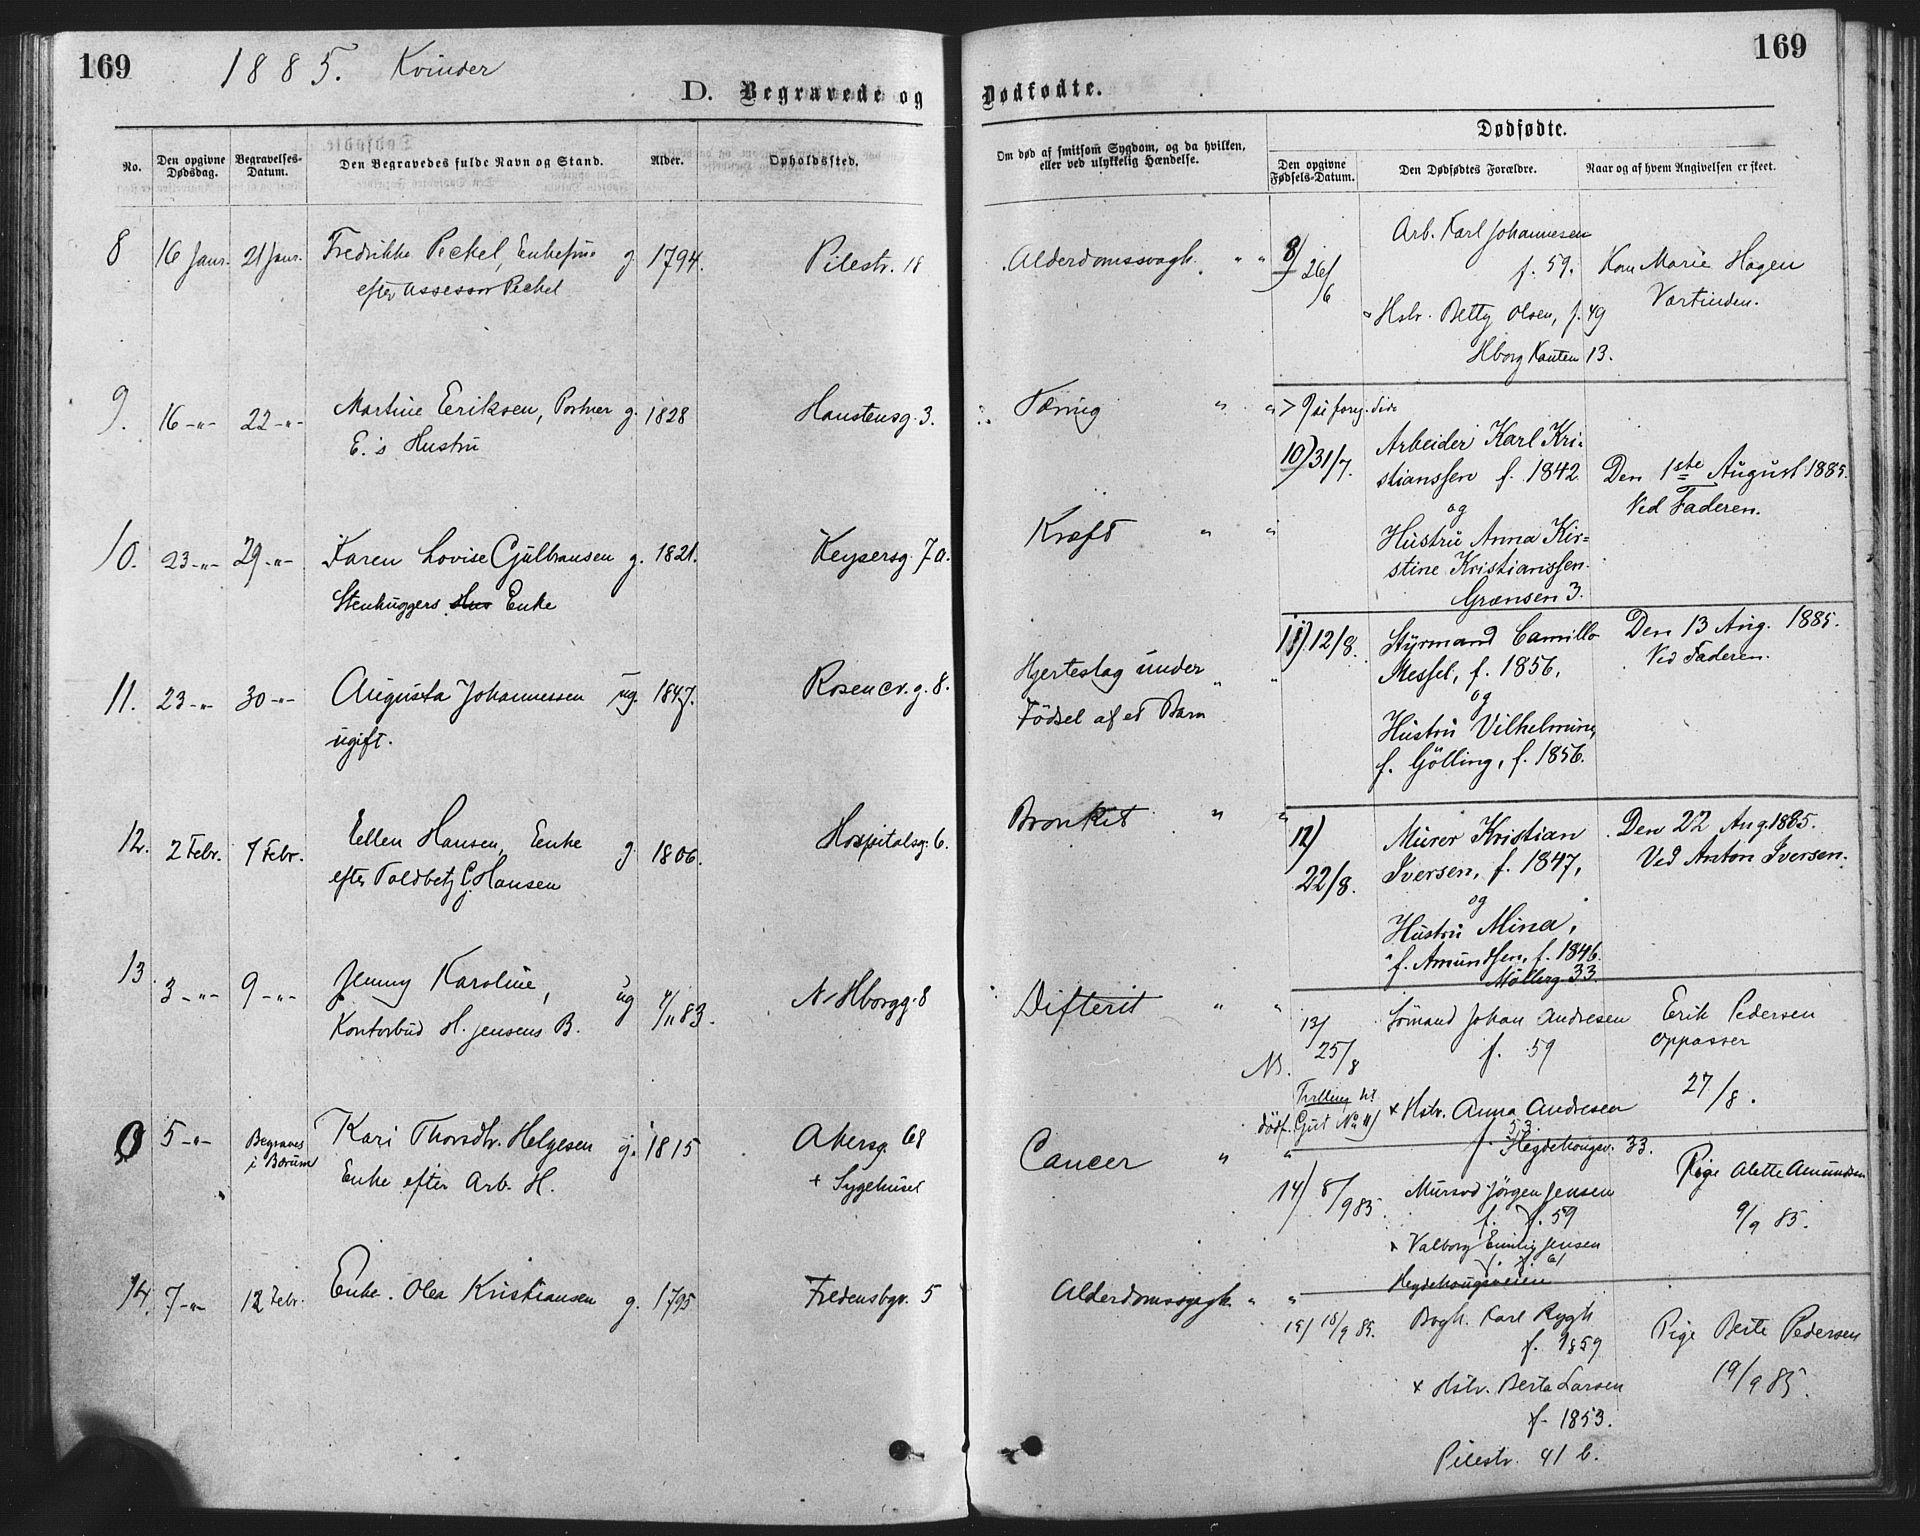 169
1885. Kvinder
D. Begravede og
No.
Den opgivne Dødsdag.
Begravelses-Datum.
Den Begravedes fulde Navn og Stand.
Alder.
Opholdssted.
8 16 Janr. 21 Janr. Fredrikke Peckel, Enkefrue g. 1794. Pilestr. 18
efter Assessor Peckel
9. 16 -"- 22 -"- Martine Eriksen, Portner g. 1828 Hanstensg. 3.
E.s Hustru
10. 23 -"- 29 -"- Karen Lovise Gulbransen g. 1821. Keysersg. 7a.
Stenhuggers Hus Enke
11. 23 -"- 30 -"- Augusta Johannessen ug. 1847. Rosencr. g. 8.
ugift.
12. 2 Febr. 7 Febr. Ellen Hansen, Enke g. 1806. Hospitalsg. 6.
efter Toldbetj. C. Hansen
13 3 -"- 9 -"- Jenny Karoline, ug 4/11 83. N. Hborgg. 8
Kontorbud H. Jensens B.
0 5 -"- Begraves Kari Thorsdtr. Helgesen g. 1815 Akersg. 68
i Bærum Enke efter Arb. H. + Sygehuset
14. 7 -"- 12 Febr. Enke Olea Kristiansen g. 1795 Fredensbgv. 5
169
Dødfødte.
Om død af smitsom Sygdom, og da hvilken,
eller ved ulykkelig Hændelse.
Dødfødte.
Den opgivne Fødsels-Datum.
Den Dødfødtes Forældre.
Naar og af hvem Angivelsen er skeet.
Alderdomssvagh. " "
8) 26/6 Arb. Karl Johannesen
f. 59. Kone Marie Hagen
Værtinden.
Hstr. Betty Olsen, f. 49
Hborg Kanten 13.
Tæring " "
> 9 se foreg. side
10) 31/7. Arbeider Karl Kri-
stianssen f. 1842 Den 1ste August 1885.
og Ved Faderen.
Kræft " "
Hustru Anna Kir-
stine Kristianssen.
Grænsen 3.
11) 12/8. Styrmand Camillo Den 13 Aug. 1885.
Messel, f. 1856, Ved Faderen.
og
Hjerteslag under " "
Födsel af et Barn
Hustru Vilhelmine,
f. Gölling, f. 1856.
Bronkit " "
12) Murer Kristian Den 22 Aug. 1885.
22/8. Iversen, f. 1847, Ved Anton Iversen.
og
Hustru Mina,
f. Amundsen, f. 1846.
Möllerg. 33.
Difterit " "
13/ Sömand Johan Andresen Erik Pedersen
25/8 f. 59 oppasser
NB. 27/8.
Tvilling til
dödf. Gut No 11) x Hstr. Anna Andresen
f. 53.
Hegdehaugsv. 33.
Cancer " "
14) 8/9 85. Mursvd. Jörgen Jensen Pige Alette Amundsen
f. 59 9/9 85.
x Valborg Emilie Jensen
f. 61
Hegdehaugsveien
Alderdomssvagh. " "
15) 18/9 85. Bogh. Karl Rygh Pige Berte Pedersen
f. 1859 19/9 85.
x Hstr. Berta Larsen
f. 1853.
Pilestr. 41 b.